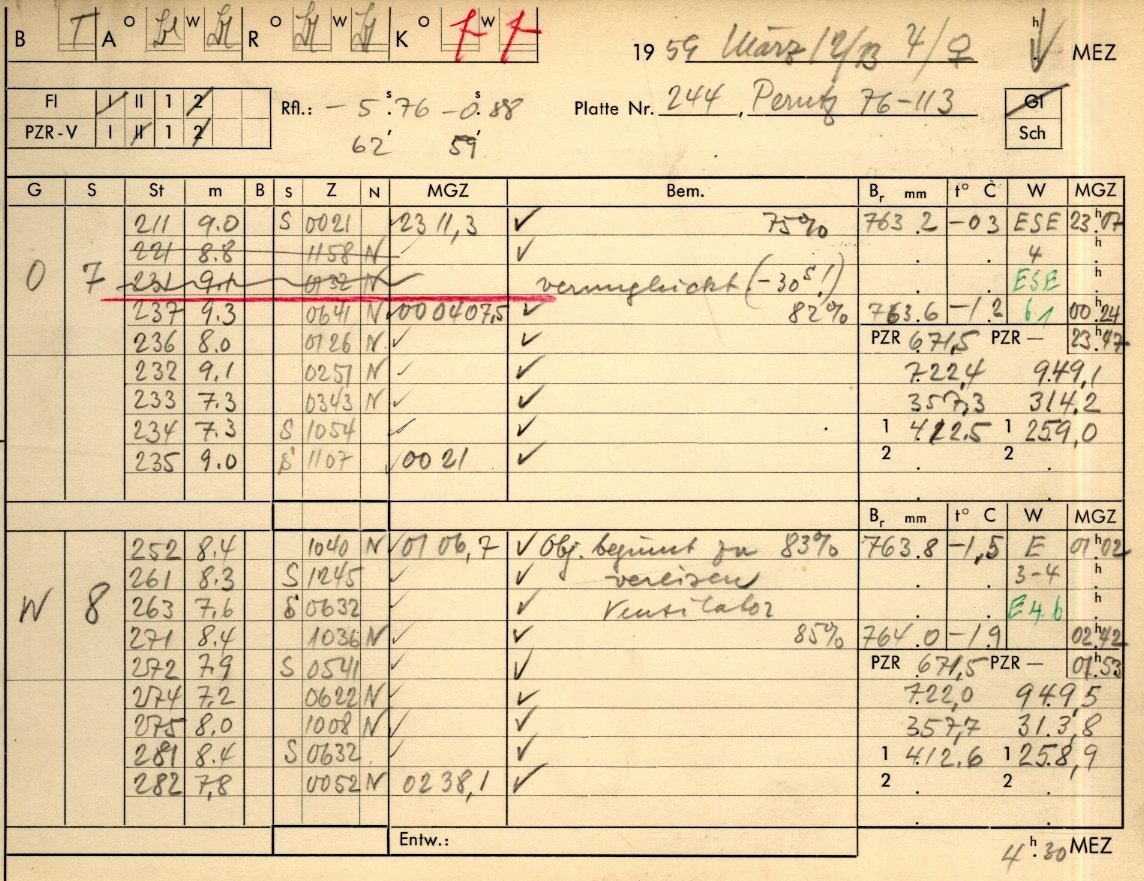 B T A O W R O W K O W
19 59 März 12/13 4/♀ h MEZ
FI I II 1 2 Rfl.: - 5 s.76 -0 s.88 Platte Nr. 244, Perutz 76-113 Gl
PZR-V I II 1 2 62' 59' Sch
G S St m B S Z N MGZ Bem. Br mm t° C W MGZ
211 9.0 S 0021 23 11,3 ✓ 75% 763.2 -03 ESE 23h07
221 8.8 1158 N ✓ 4 h
O 7 231 9.1 0732 N ✓ verunglückt (-30s!) ESE h
237 9.3 0641 N ✓ 000407,5 ✓ 82% 763.6 -1.2 6.1 00h24
236 8.0 0126 N ✓ ✓ PZR 671,5 PZR — 23h47
232 9,1 0251 N ✓ ✓ 722,4 949,1
233 7.3 0343 N ✓ ✓ 357,3 314,2
234 7.3 S 1054 ✓ ✓ 1 412.5 1 259,0
235 9.0 S 1107 ✓ 0021 ✓ 2 2
Br mm t° C W MGZ
252 8.4 1040 N ✓ 01 06,7 ✓ Obj. beginnt zu 83% 763.8 -1,5 E 01h02
261 8.3 S 1245 ✓ ✓ vereisen 3-4 h
W 8 263 7,6 S 0632 ✓ ✓ Ventilator E 4.6 h
271 8.4 1036 N ✓ ✓ 85% 764.0 -19 02h42
272 7.9 S 0541 ✓ ✓ PZR 671,5 PZR — 01h53
274 7.2 0622 N ✓ 722,0 949,5
275 8,0 1008 N ✓ ✓ 357,7 31.3,8
281 8.4 S 0632 ✓ ✓ 1 412.6 1 258,9
282 7,8 0052 N 02 38,1 ✓ 2 2
Entw.:
4h.30 MEZ